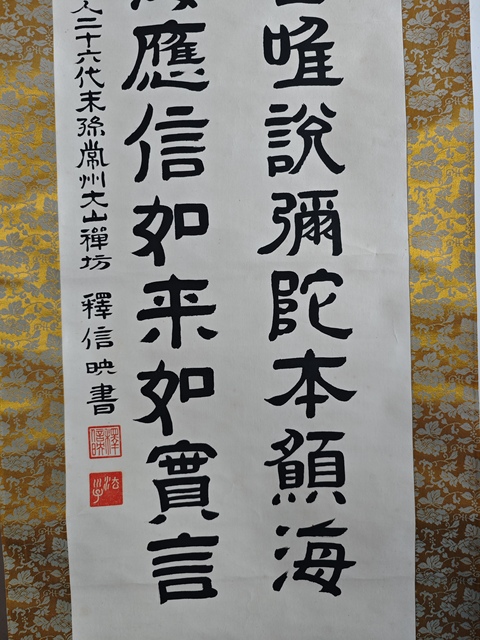 唯說彌陀本願海
應信如来如實言
二十六代末孫常州大山禪坊 釋信映書